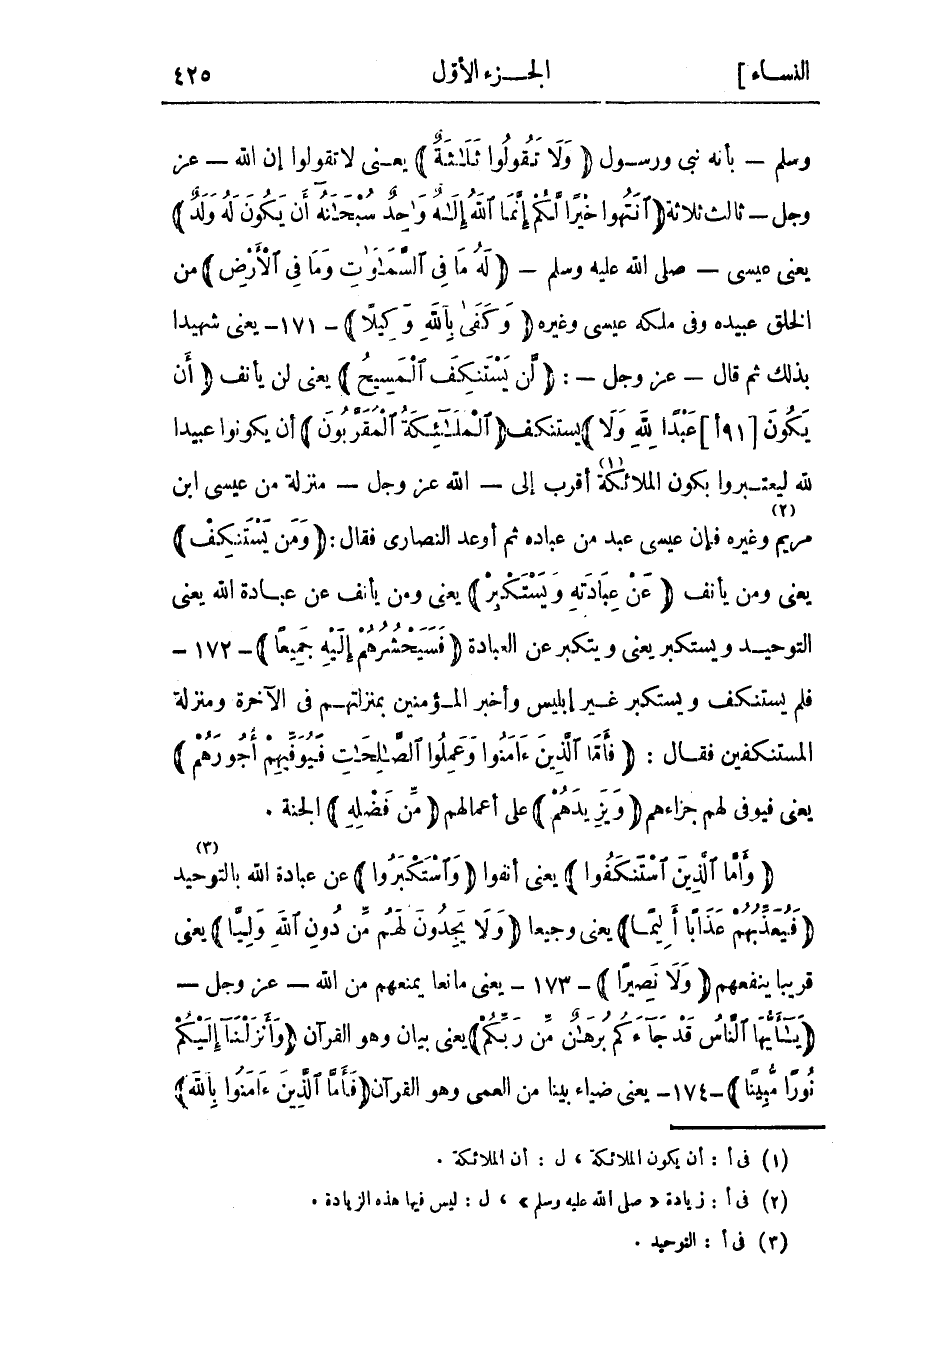 النساء ] الجـــزء الأول ٤٢٥
وسلم — بأنه نبى ورسـول ﴿ وَلَا تَقُولُوا ثَلَـٰثَةٌ ﴾ يعـنى لا تقولوا إن الله — عز
وجل — ثالث ثلاثة ﴿ ٱنتَهُوا خَيْرًا لَّكُمْ إِنَّمَا ٱللَّهُ إِلَـٰهٌ وَٰحِدٌ سُبْحَـٰنَهُٓ أَن يَكُونَ لَهُ وَلَدٌ ﴾
يعنى عيسى — صلى الله عليه وسلم — ﴿ لَهُ مَا فِى ٱلسَّمَـٰوَٰتِ وَمَا فِى ٱلْأَرْضِ ﴾ من
الخلق عبيده وفى ملكه عيسى وغيره ﴿ وَكَفَىٰ بِٱللَّهِ وَكِيلًا ﴾ – ١٧١ – يعنى شهيدا
بذلك ثم قال — عز وجل — : ﴿ لَّن يَسْتَنكِفَ ٱلْمَسِيحُ ﴾ يعنى لن يأنف ﴿ أَن
يَكُونَ [ ٩١أ ] عَبْدًا لِلَّهِ وَلَا ﴾ يستنكف ﴿ ٱلْمَلَـٰٓئِكَةُ ٱلْمُقَرَّبُونَ ﴾ أن يكونوا عبيدا
لله ليعتـبروا بكون الملائكة(١) أقرب إلى — الله عز وجل — منزلة من عيسى ابن
مريم وغيره(٢) فإن عيسى عبد من عباده ثم أوعد النصارى فقال : ﴿ وَمَن يَسْتَنكِفْ ﴾
يعنى ومن يأنف ﴿ عَنْ عِبَادَتِهِ وَيَسْتَكْبِرْ ﴾ يعنى ومن يأنف عن عبـادة الله يعنى
التوحيـد ويستكبر يعنى ويتكبر عن العبادة ﴿ فَسَيَحْشُرُهُمْ إِلَيْهِ جَمِيعًا ﴾ – ١٧٢ –
فلم يستنكف ويستكبر غـير إبليس وأخبر المـؤمنين بمنزلتهـم فى الآخرة ومنزلة
المستنكفين فقـال : ﴿ فَأَمَّا ٱلَّذِينَ ءَامَنُوا وَعَمِلُوا ٱلصَّـٰلِحَـٰتِ فَيُوَفِّيهِمْ أُجُورَهُمْ ﴾
يعنى فيوفى لهم جزاءهم ﴿ وَيَزِيدَهُمْ ﴾ على أعمالهم ﴿ مِّن فَضْلِهِ ﴾ الجنة .
﴿ وَأَمَّا ٱلَّذِينَ ٱسْتَنكَفُوا ﴾ يعنى أنفوا ﴿ وَٱسْتَكْبَرُوا ﴾ عن عبادة الله بالتوحيد(٣)
﴿ فَيُعَذِّبُهُمْ عَذَابًا أَلِيمًـا ﴾ يعنى وجيعا ﴿ وَلَا يَجِدُونَ لَهُم مِّن دُونِ ٱللَّهِ وَلِيًّا ﴾ يعنى
قريبا ينفعهم ﴿ وَلَا نَصِيرًا ﴾ – ١٧٣ – يعنى مانعا يمنعهم من الله — عز وجل —
﴿ يَـٰٓأَيُّهَا ٱلنَّاسُ قَدْ جَآءَكُم بُرْهَـٰنٌ مِّن رَّبِّكُمْ ﴾ يعنى بيان وهو القرآن ﴿ وَأَنزَلْنَآ إِلَيْكُمْ
نُورًا مُّبِينًا ﴾ – ١٧٤ – يعنى ضياء بينا من العمى وهو القرآن ﴿ فَأَمَّا ٱلَّذِينَ ءَامَنُوا بِٱللَّهِ ﴾
(١) فى أ : أن يكون الملائكة ، ل : أن الملائكة .
(٢) فى أ : زيادة « صلى الله عليه وسلم » ، ل : ليس فيها هذه الزيادة .
(٣) فى أ : التوحيد .